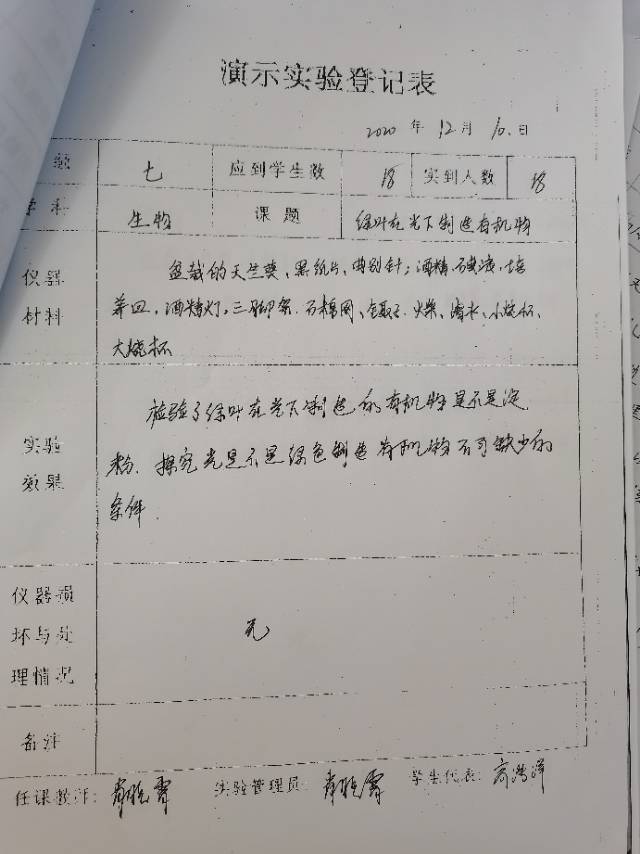 演示实验登记表
2020 年 12 月 10 日
级 七 应到学生数 18 实到人数 18
学科 生物 课题 绿叶在光下制造有机物
仪器 盆栽的天竺葵、黑纸片、曲别针、酒精、碘液、培
材料 养皿、酒精灯、三脚架、石棉网、镊子、火柴、清水、小烧杯、
大烧杯
检验了绿叶在光下制造的有机物是不是淀
实验 粉、探究光是不是绿色制造有机物不可缺少的
效果 条件
仪器损
坏与处 无
理情况
备注
任课教师: 实验管理员: 学生代表: